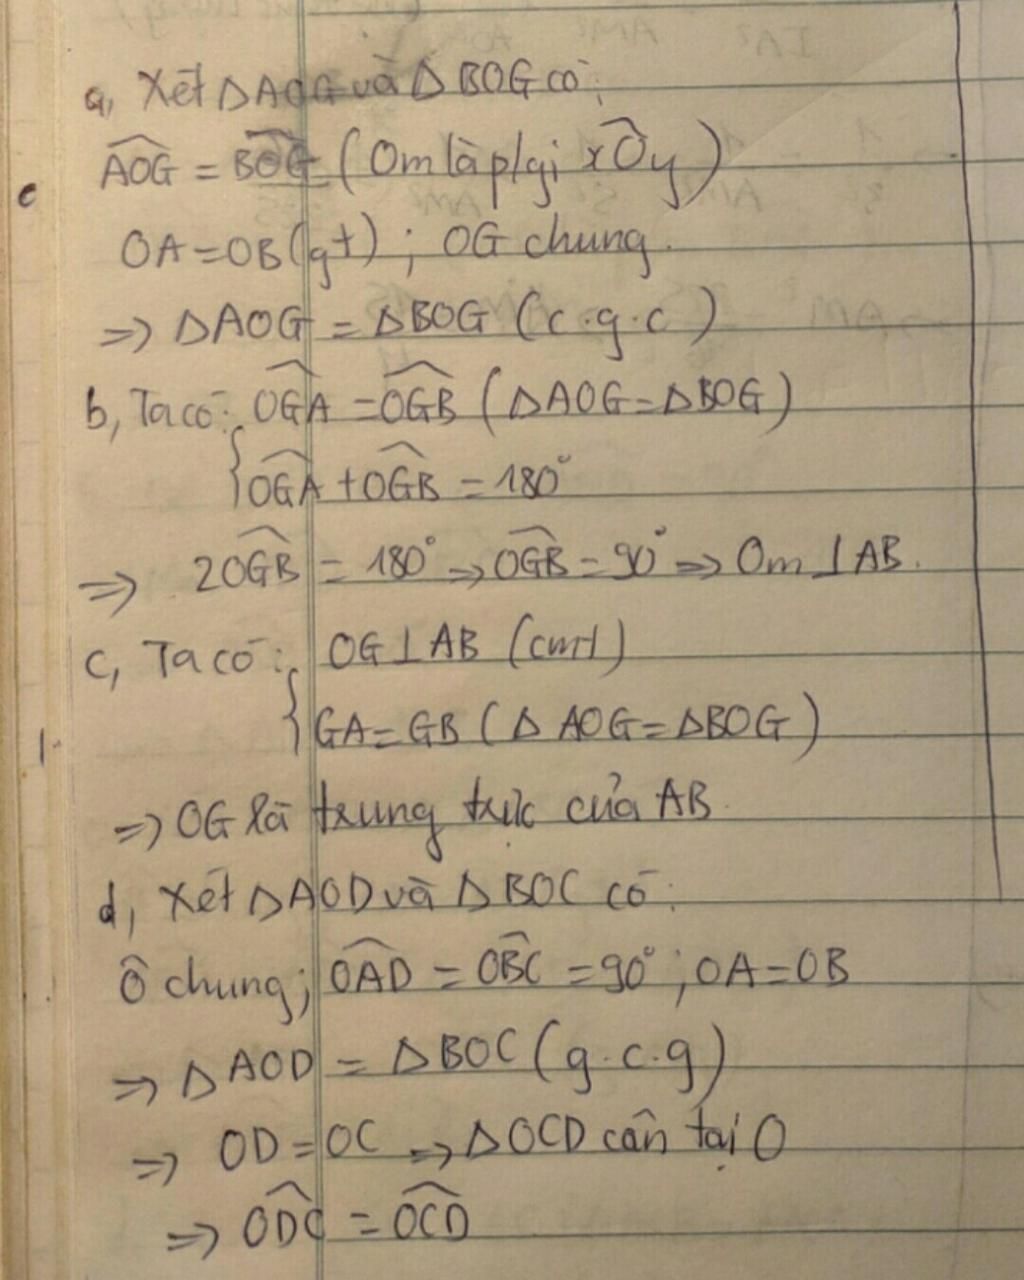 a, Xét ΔAOG và ΔBOG có:
$\widehat{AOG}$ = $\widehat{BOG}$ (Om là p/gi x$\widehat{O}$y)
OA=OB (gt); OG chung.
=> ΔAOG = ΔBOG (c.g.c)
b, Ta có: $\widehat{OGA}$ = $\widehat{OGB}$ (ΔAOG=ΔBOG)
{ $\widehat{OGA}$ + $\widehat{OGB}$ = 180°
=> 2$\widehat{OGB}$ = 180° => $\widehat{OGB}$ = 90° => Om ⊥ AB.
c, Ta có: OG ⊥ AB (cmt)
{ GA=GB (ΔAOG=ΔBOG)
=> OG là trung trực của AB.
d, Xét ΔAOD và ΔBOC có:
Ô chung; $\widehat{OAD}$ = $\widehat{OBC}$ = 90°; OA=OB
=> ΔAOD = ΔBOC (g.c.g)
=> OD=OC => ΔOCD cân tại O
=> $\widehat{ODC}$ = $\widehat{OCD}$